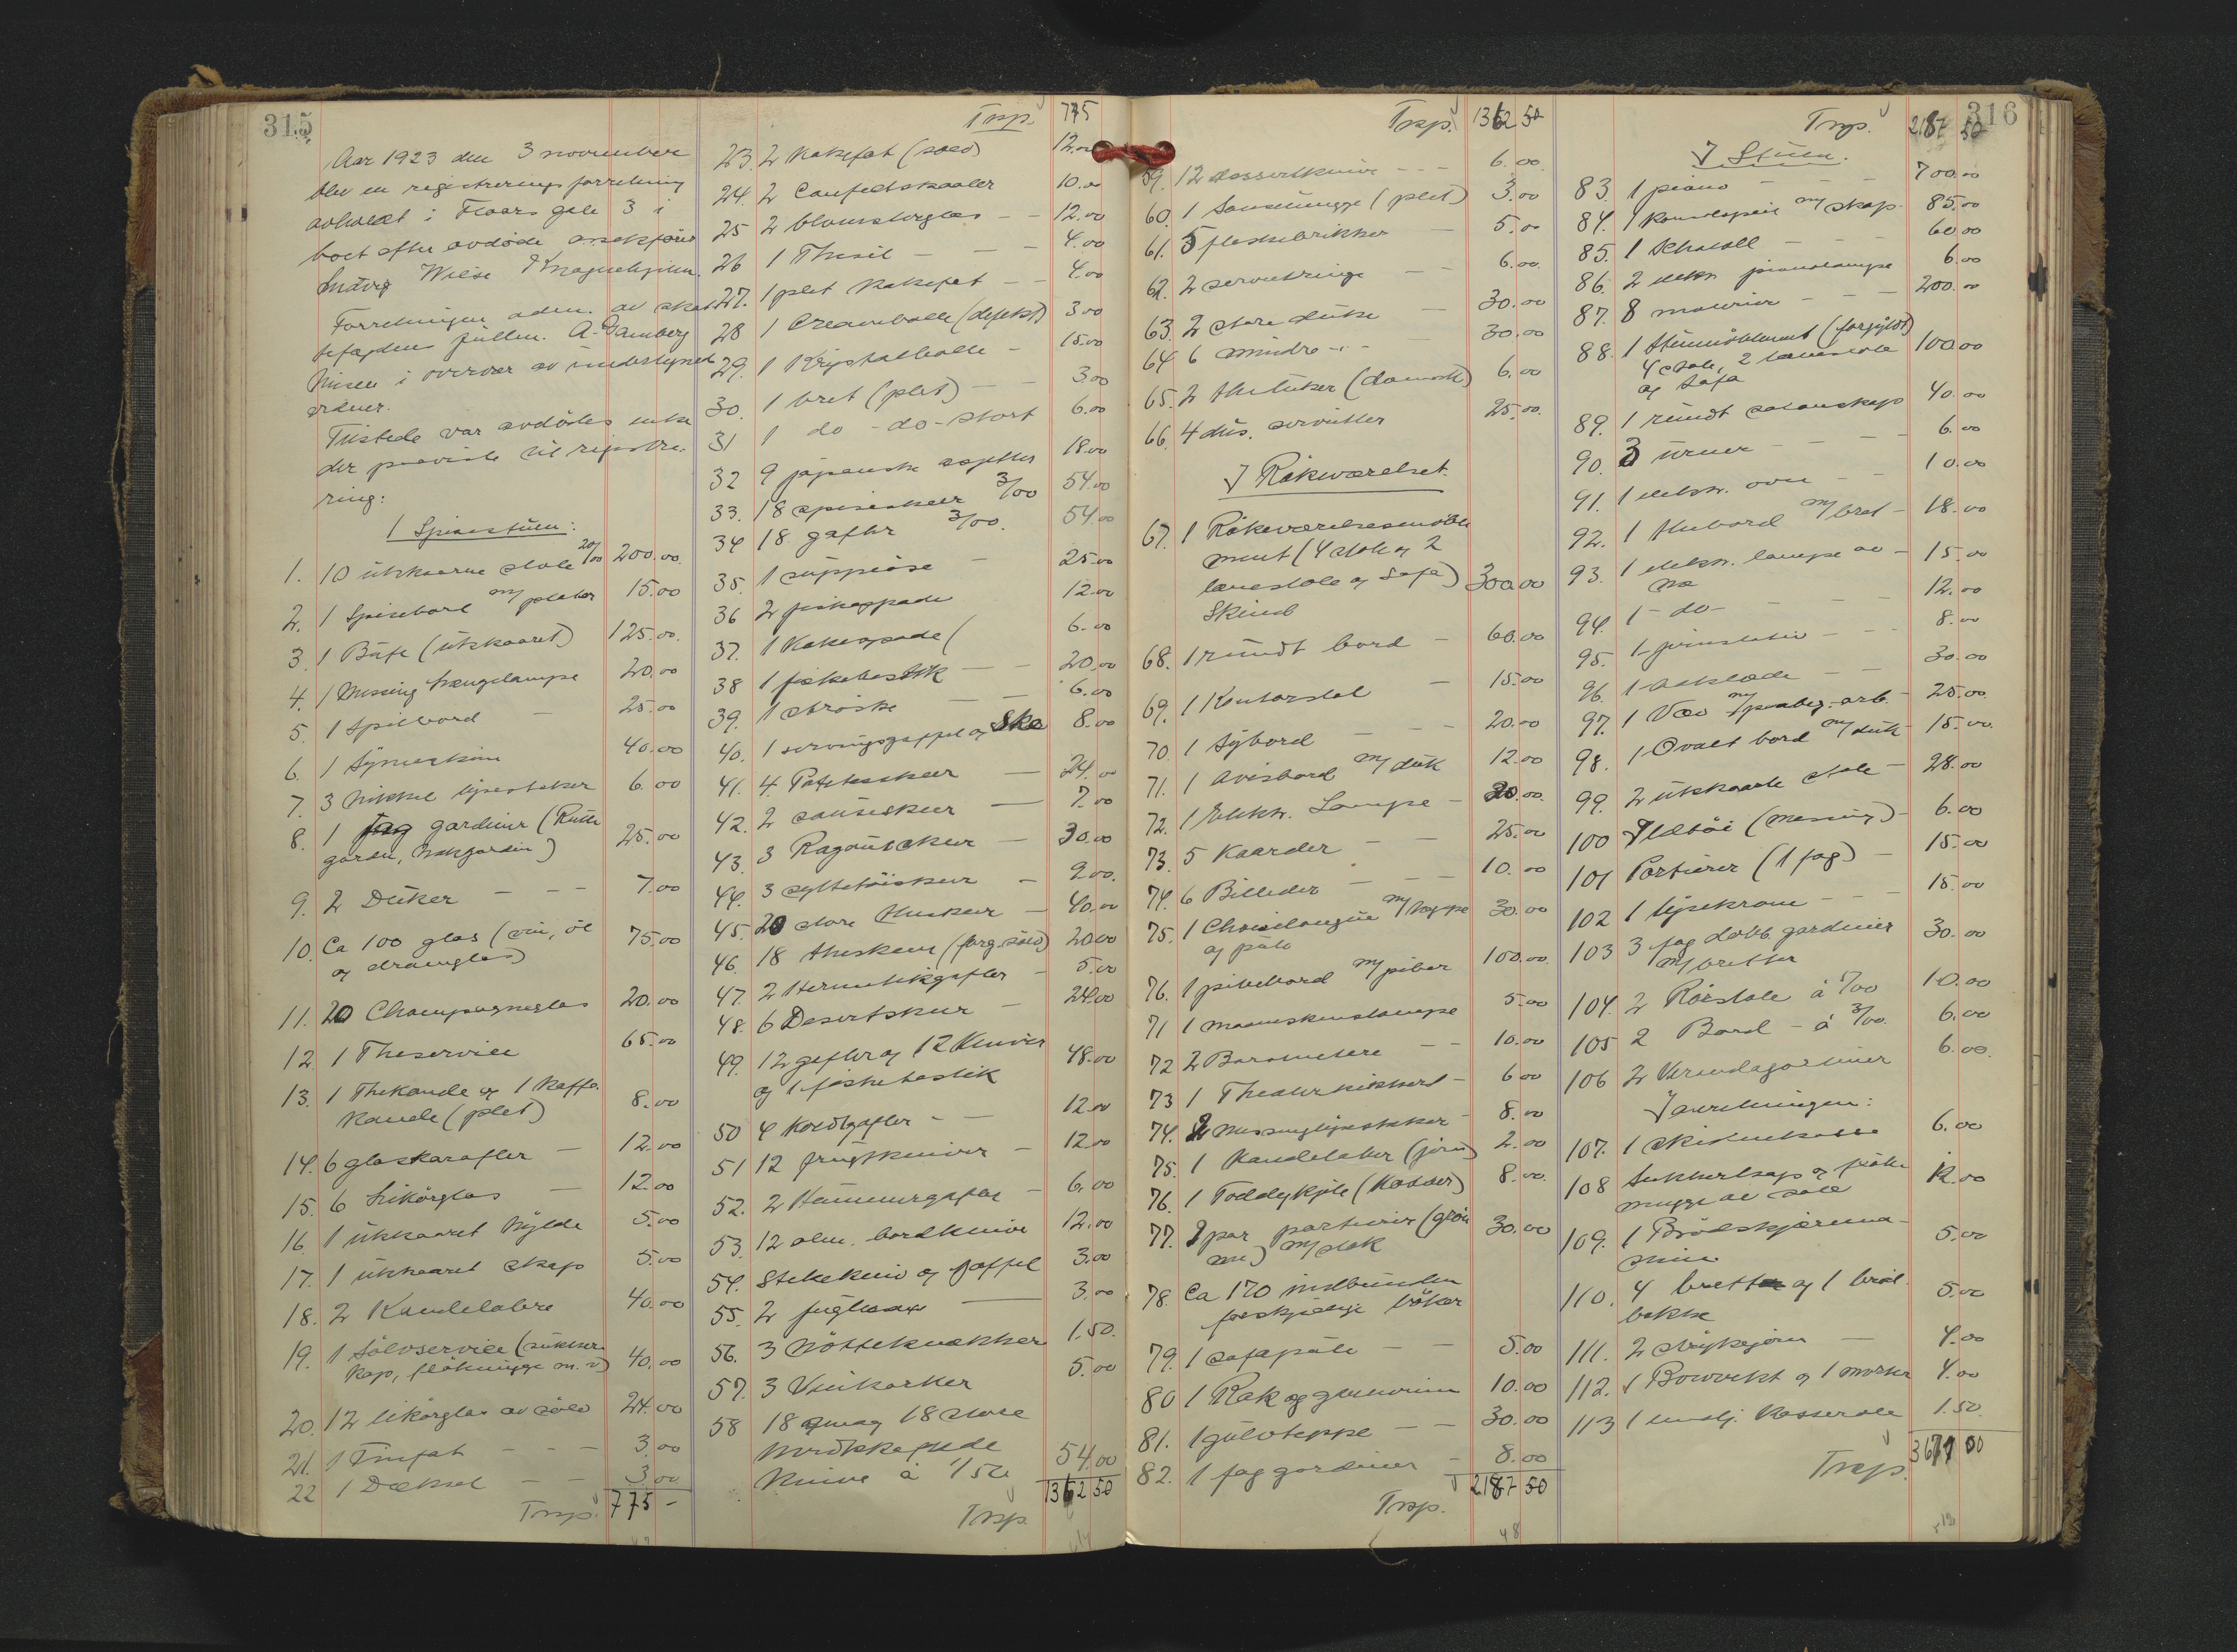 315
Aar 1923 den 3 november
blev en registreringsforretning
avholdt i Floors gate 3 i
boet efter avdöde
Ludvig Wiese
Forretningen adm. av skat
tefogdens fullm. A. Damberg
Nissen i overvær av undertegnede
vidner.
Tilstede var avdödes enke
der paaviste til registre-
ring:
I Spisestuen:
1. 10 utskaarne stole 20/00 200.00
2. 1 Spisebord m/ plater 15.00
3. 1 Büfe (utskaaret) 125.00
4. 1 Messing hængelampe 20.00
5. 1 Spilbord - 25.00
6. 1 Symaskin 40.00
7. 3 Nikkel lysestaker 6.00
8. 1 fag gardiner (Rulle
gardin, trækgardin) 25.00
9. 2 Duker - - - 7.00
10. Ca 100 glas (vin, öl
og dramglas) 75.00
11. 20 Champagneglas 20.00
12. 1 Theservice 65.00
13. 1 Thekande og 1 Kaffe
kande (plet) 8.00
14. 6 glaskarafler - 12.00
15. 6 Likörglas - 12.00
16. 1 utskaaret hylde 5.00
17. 1 utskaaret skap 5.00
18. 2 Kandelabre 40.00
19. 1 sölvservice (sukker
kop, flötemugge m. v) 40.00
20. 12 likörglas av sölv 24.00
21. 1 Tinfat - - - 3.00
22 1 Dæksel - - 3.00
Trsp. 775 -
Trsp. 775
23. 2 Kakefat (sölv) 12.00
24. 2 Confectskaaler 10.00
25 2 blomsterglas - - 12.00
26 1 Thesil - - - 4.00
27. 1 plet Kakefat - - 4.00
28 1 Creambolle (defekt) 3.00
29. 1 Krystalbolle - 15.00
30. 1 bret (plet) - - 3.00
31 1 do - do - stort 6.00
32 9 japanske asjetter 18.00
33. 18 spiseskeer 3/00 54.00
34 18 gafler 3/00. 54.00
35. 1 suppeöse - 25.00
36 2 fiskespade 12.00
37. 1 Kakespade ( 6.00
38 1 fiskebestik - - 20.00
39. 1 ströske - - 6.00
40. 1 serveringsgaffel og Ske 8.00
41. 4 Potetesskeer - 24.00
42. 2 sauseskeer - 7.00
43. 3 Ragoutskeer - 30.00
44. 3 syltetöiskeer - 9.00.
45. 20 store theskeer - 40.00
46. 18 theskeer (forg. sölv) 20.00
47. 2 Hermetikgafler - 5.00
48. 6 Desertskeer - 24.00
49. 12 gafler og 12 Kniver
og 1 fiskebestik 48.00
50 4 Koldtgafler - - 12.00
51 12 frugtkniver - 12.00
52. 2 Hummergafler - 6.00
53. 12 alm. bordknive 12.00
54. Stekekniv og gaffel 3.00
55. 2 fuglesax 3.00
56. 3 Nötteknækker 1.50.
57. 3 Vinkorker 5.00
58 18 smaa og 18 store
Kniver à 1/50 54.00
Trsp. 1362 50
Trsp. 1362 50
59. 12 dessertkniver - - - 6.00
60. 1 Sausemugge (plet) 3.00
61. 5 flaskebrikker - 5.00
62. 2 servietringe - - 6.00
63. 2 store duke - 30.00
64 6 mindre -"- - 30.00
65. 2 theduker (damask) 6.00
66. 4 dus. servietter 25.00
I Rökeværelset.
67. 1 Rökeværelsesmöble
ment (4 stole og 2
lænestole og Sofa) 300.00
Skind
68. 1 rundt bord - 60.00
69. 1 Kontorstol - 15.00
70. 1 Sybord - - 20.00
71. 1 avisbord m/ duk 12.00
72. 1 Elektr. Lampe - 20.00
73. 5 Kaarder - - 25.00
74. 6 Billeder - - - 10.00
75. 1 Chaiselongue m/ teppe
og pute 30.00
76. 1 pibebord m/ piber 100.00
71 1 maaneskinslampe 5.00
72 2 Barometere - - 10.00
73 1 Theaterkikkert - 6.00
74. 2 messinglysestaker 8.00
75. 1 Kandelaber (jern) 2.00
76. 1 Toddykjele (Kobber) 8.00.
77. 2 par portierer (grön
ne) m/ stok 30.00
78. Ca 170 indbundne
forskjellige böker
79. 1 sofapute - - 5.00
80 1 Rök og 10.00
81. 1 gulvteppe - - 30.00
82. 1 fag gardiner - 8.00
Trsp. 2187 50
316
Trsp. 2187 50
I Stuen.
83. 1 piano - - - 700.00
84. 1 Konsolspeil m/ skap 85.00
85. 1 Chatoll - - - 60.00
86. 2 elektr. pianolampe 6.00
87. 8 malerier - - - 200.00
88. 1 Stuemöblement (forgyldt)
4 stole, 2 lænestole 100.00
og sofa
89. 1 rundt salonskap 40.00
90. 3 urner - - - - 6.00
91. 1 elektr. ovn - - 10.00
92. 1 thebord m/ bret - 18.00
93. 1 elektr. lampe av 15.00
94. 1 - do - - - - 12.00
95. 1 - - - 8.00
96. 1 - 30.00
97. 1 25.00
98. 1 Ovalt bord m/ duk 15.00
99. 2 utskaarte stole - 28.00
100 Ildtöi (messing) - 6.00
101 Portierer (1 fag) - 15.00
102 1 lysekrone - - 15.00
103 3 fag dobb. gardiner
m/ bretter 30.00
104. 2 Rörstole à 5/00 10.00
105 2 Bord - à 3/00. 6.00
106 2 Verandagardiner 6.00
I anretningen:
107. 1 6.00
108 Sukkerkop og flöte
mugge av sölv 12.00
109. 1 Brödskjærema-
skine 5.00
110. 4 brett og 1 bröd
bakke 5.00
111. 2 strykejern - 4.00
112. 1 Bordvekt og 1 morter 4.00
113 1 emalj. Kasserole 1.50
Trsp. 3671 00